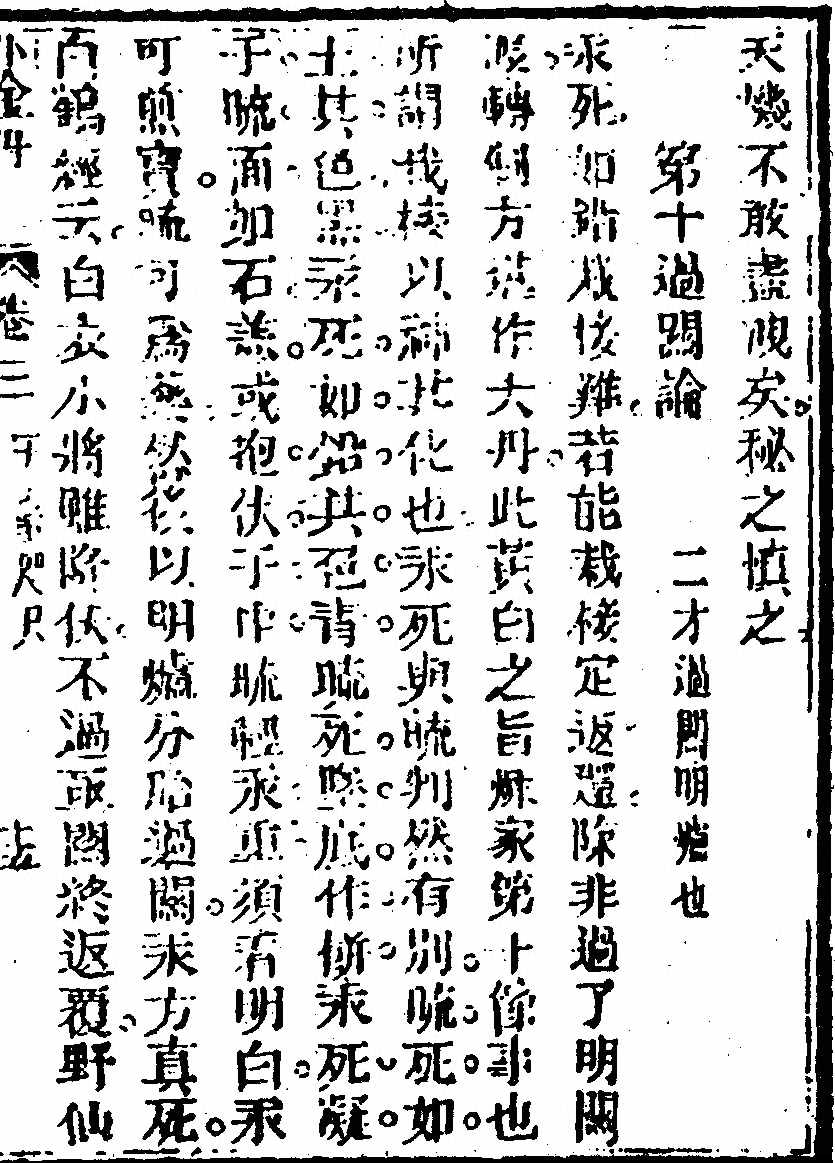 天機不敢盡洩矣秘之慎之
第十過關論 二才過關明爐也
汞死如鉛成後難若能栽接定返還除非過了明關
漿轉制方堪作大丹此黃白之旨燒家第十像事也
所謂栽接以神其化也汞死與硫判然有別硫死如
土其色黑汞死如鉛其色青硫死墜底作餅汞死凝
子硫面如石蓋或抱伏于中硫輕汞重須清明白汞
可煎寶硫可為藥然後以明爐分胎過關汞方真死
白鶴經云白衣小將雖降伏不過砥關終返覆野仙
卷三